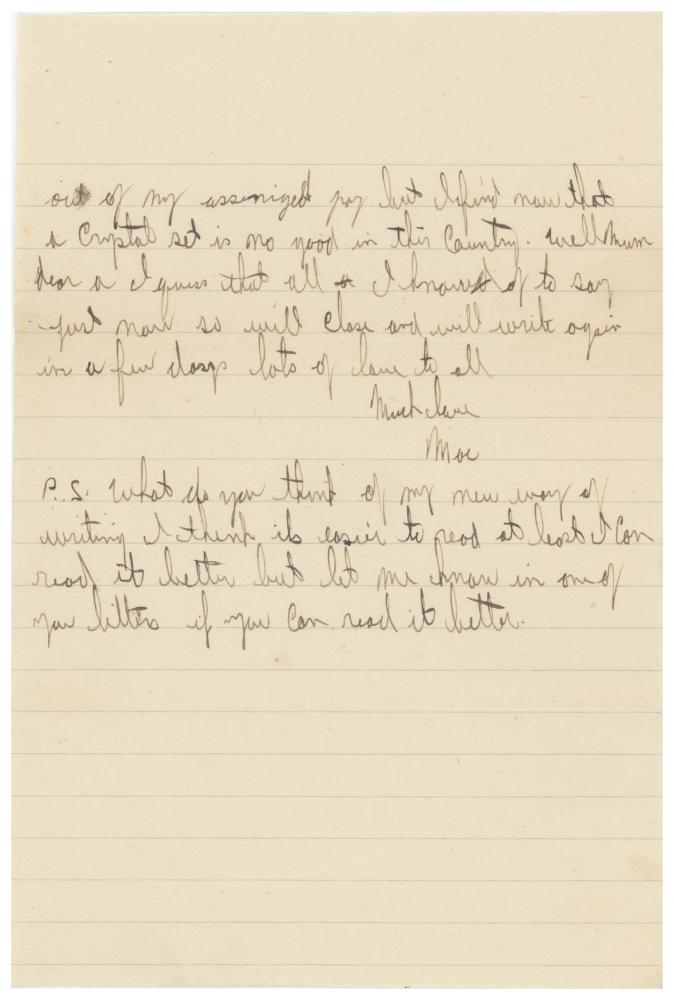 out of my asseniged pay but I find now that
a Crystal set is no good in this Country. Well Mum
dear a I guess that all I know of to say
just now so will close and will write again
in a few days lots of love to all
Much love
Moe
P.S. What do you think of my new way of
writing I think its easier to read at least I Can
read it better but let me know in one of
you letters if you Can read it better.